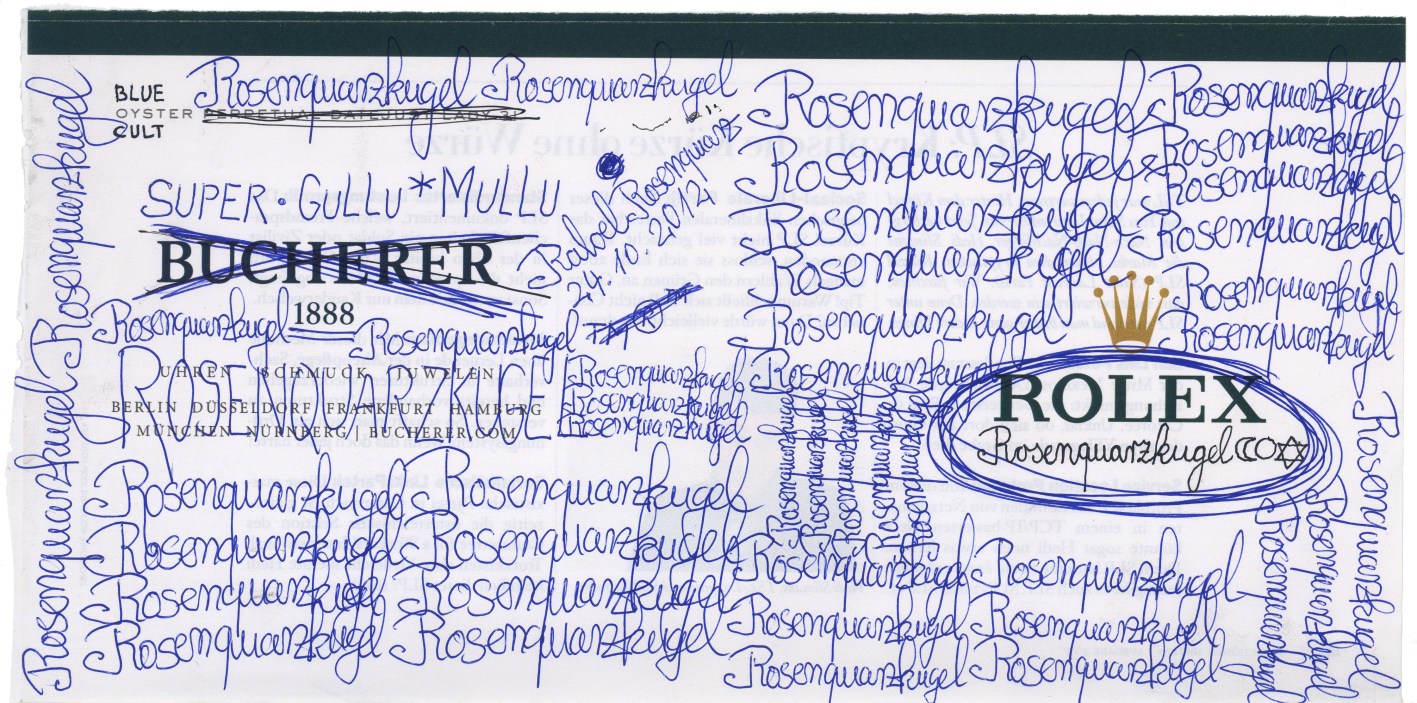 Rosenquarzkugel Rosenquarzkugel
BLUE
OYSTER PERPETUAL DATEJUST LADY 31
CULT
SUPER.
BUCHERER
1888
Rosenquarzkugel Rosenquarzkugel
UHREN SCHMUCK JUWELEN
BERLIN DÜSSELDORF FRANKFURT HAMBURG
MÜNCHEN NÜRNBERG | BUCHERER.COM
Rosenquarz
24.12.
Rosenquarzkugel
Rosenquarzkugel
Rosenquarzkugel
Rosenquarzkugel Rosenquarzkugel
Rosenquarzkugel Rosenquarzkugel
Rosenquarzkugel Rosenquarzkugel
Rosenquarzkugel Rosenquarzkugel
Rosenquarzkugel
Rosenquarzkugel
Rosenquarzkugel
Rosenquarzkugel Rosenquarzkugel
Rosenquarzkugel
Rosenquarzkugel Rosenquarzkugel
Rosenquarzkugel Rosenquarzkugel
Rosenquarzkugel Rosenquarzkugel
Rosenquarzkugel Rosenquarzkugel
Rosenquarzkugel
ROLEX
Rosenquarzkugel
Rosenquarzkugel
Rosenquarzkugel
Rosenquarzkugel
Rosenquarzkugel
Rosenquarzkugel
Rosenquarzkugel Rosenquarzkugel
Rosenquarzkugel Rosenquarzkugel
Rosenquarzkugel Rosenquarzkugel
Rosenquarzkugel
Rosenquarzkugel
Rosenquarzkugel